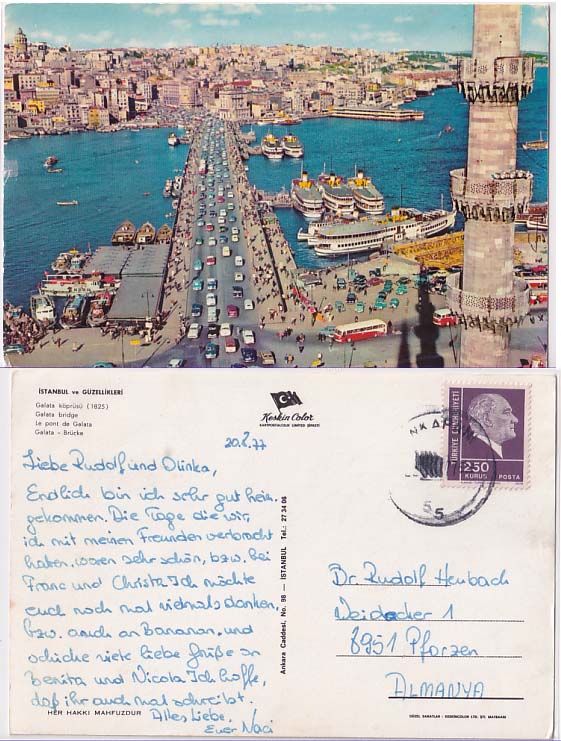 İSTANBUL ve GÜZELLİKLERİ
Galata köprüsü (1625)
Galata bridge
Le pont de Galata
Galata - Brücke
Keskin Color
KARTPOSTALCILIK LİMİTED ŞİRKETİ
TÜRKİYE CUMHURİYETİ
250
KURUS POSTA
55
20.2.77
Liebe Rudolf und Olinka,
Endlich bin ich sehr gut heim
gekommen. Die Tage die wir,
ich mit meinen Freunden verbracht
haben, waren sehr schön, bzw. bei
Franc und Christa. Ich möchte
euch noch mal vielmals danken,
bzw. auch an Bananan, und
schicke viele liebe Grüße an
Benita und Nicola. Ich hoffe,
daß ihr auch mal schreibt.
Alles Liebe,
Euer Naci
HER HAKKI MAHFUZDUR
Ankara Caddesi, No. 98 — İSTANBUL Tel.: 27 34 06
Dr. Rudolf Henbach
Weidacher 1
8951 Pforzen
ALMANYA
GÜZEL SANATLAR - KESKİNCOLOR LTD. ŞTİ. MATBAASI